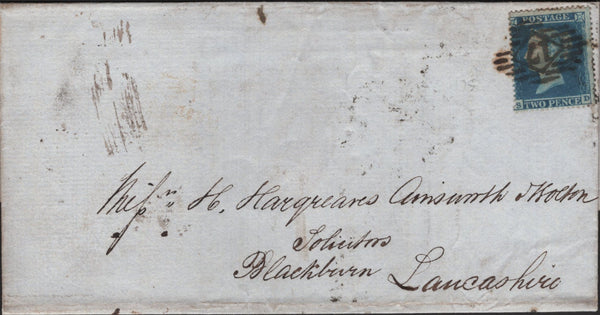 POSTAGE
TWO PENCE
Messrs H. Hargreaves Ainsworth & Bolton
Solicitors
Blackburn Lancashire